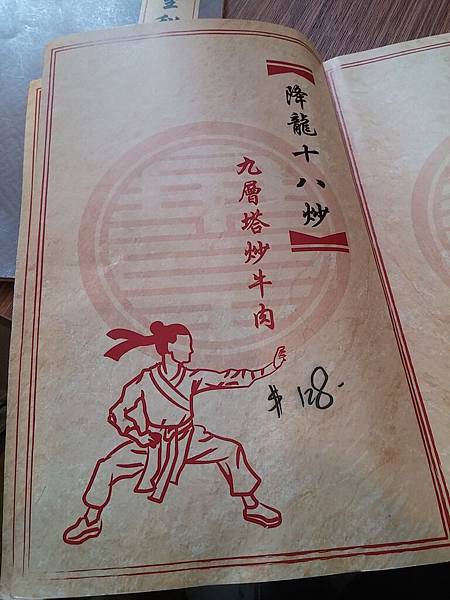 降龍十八炒
九層塔炒牛肉
$128.-